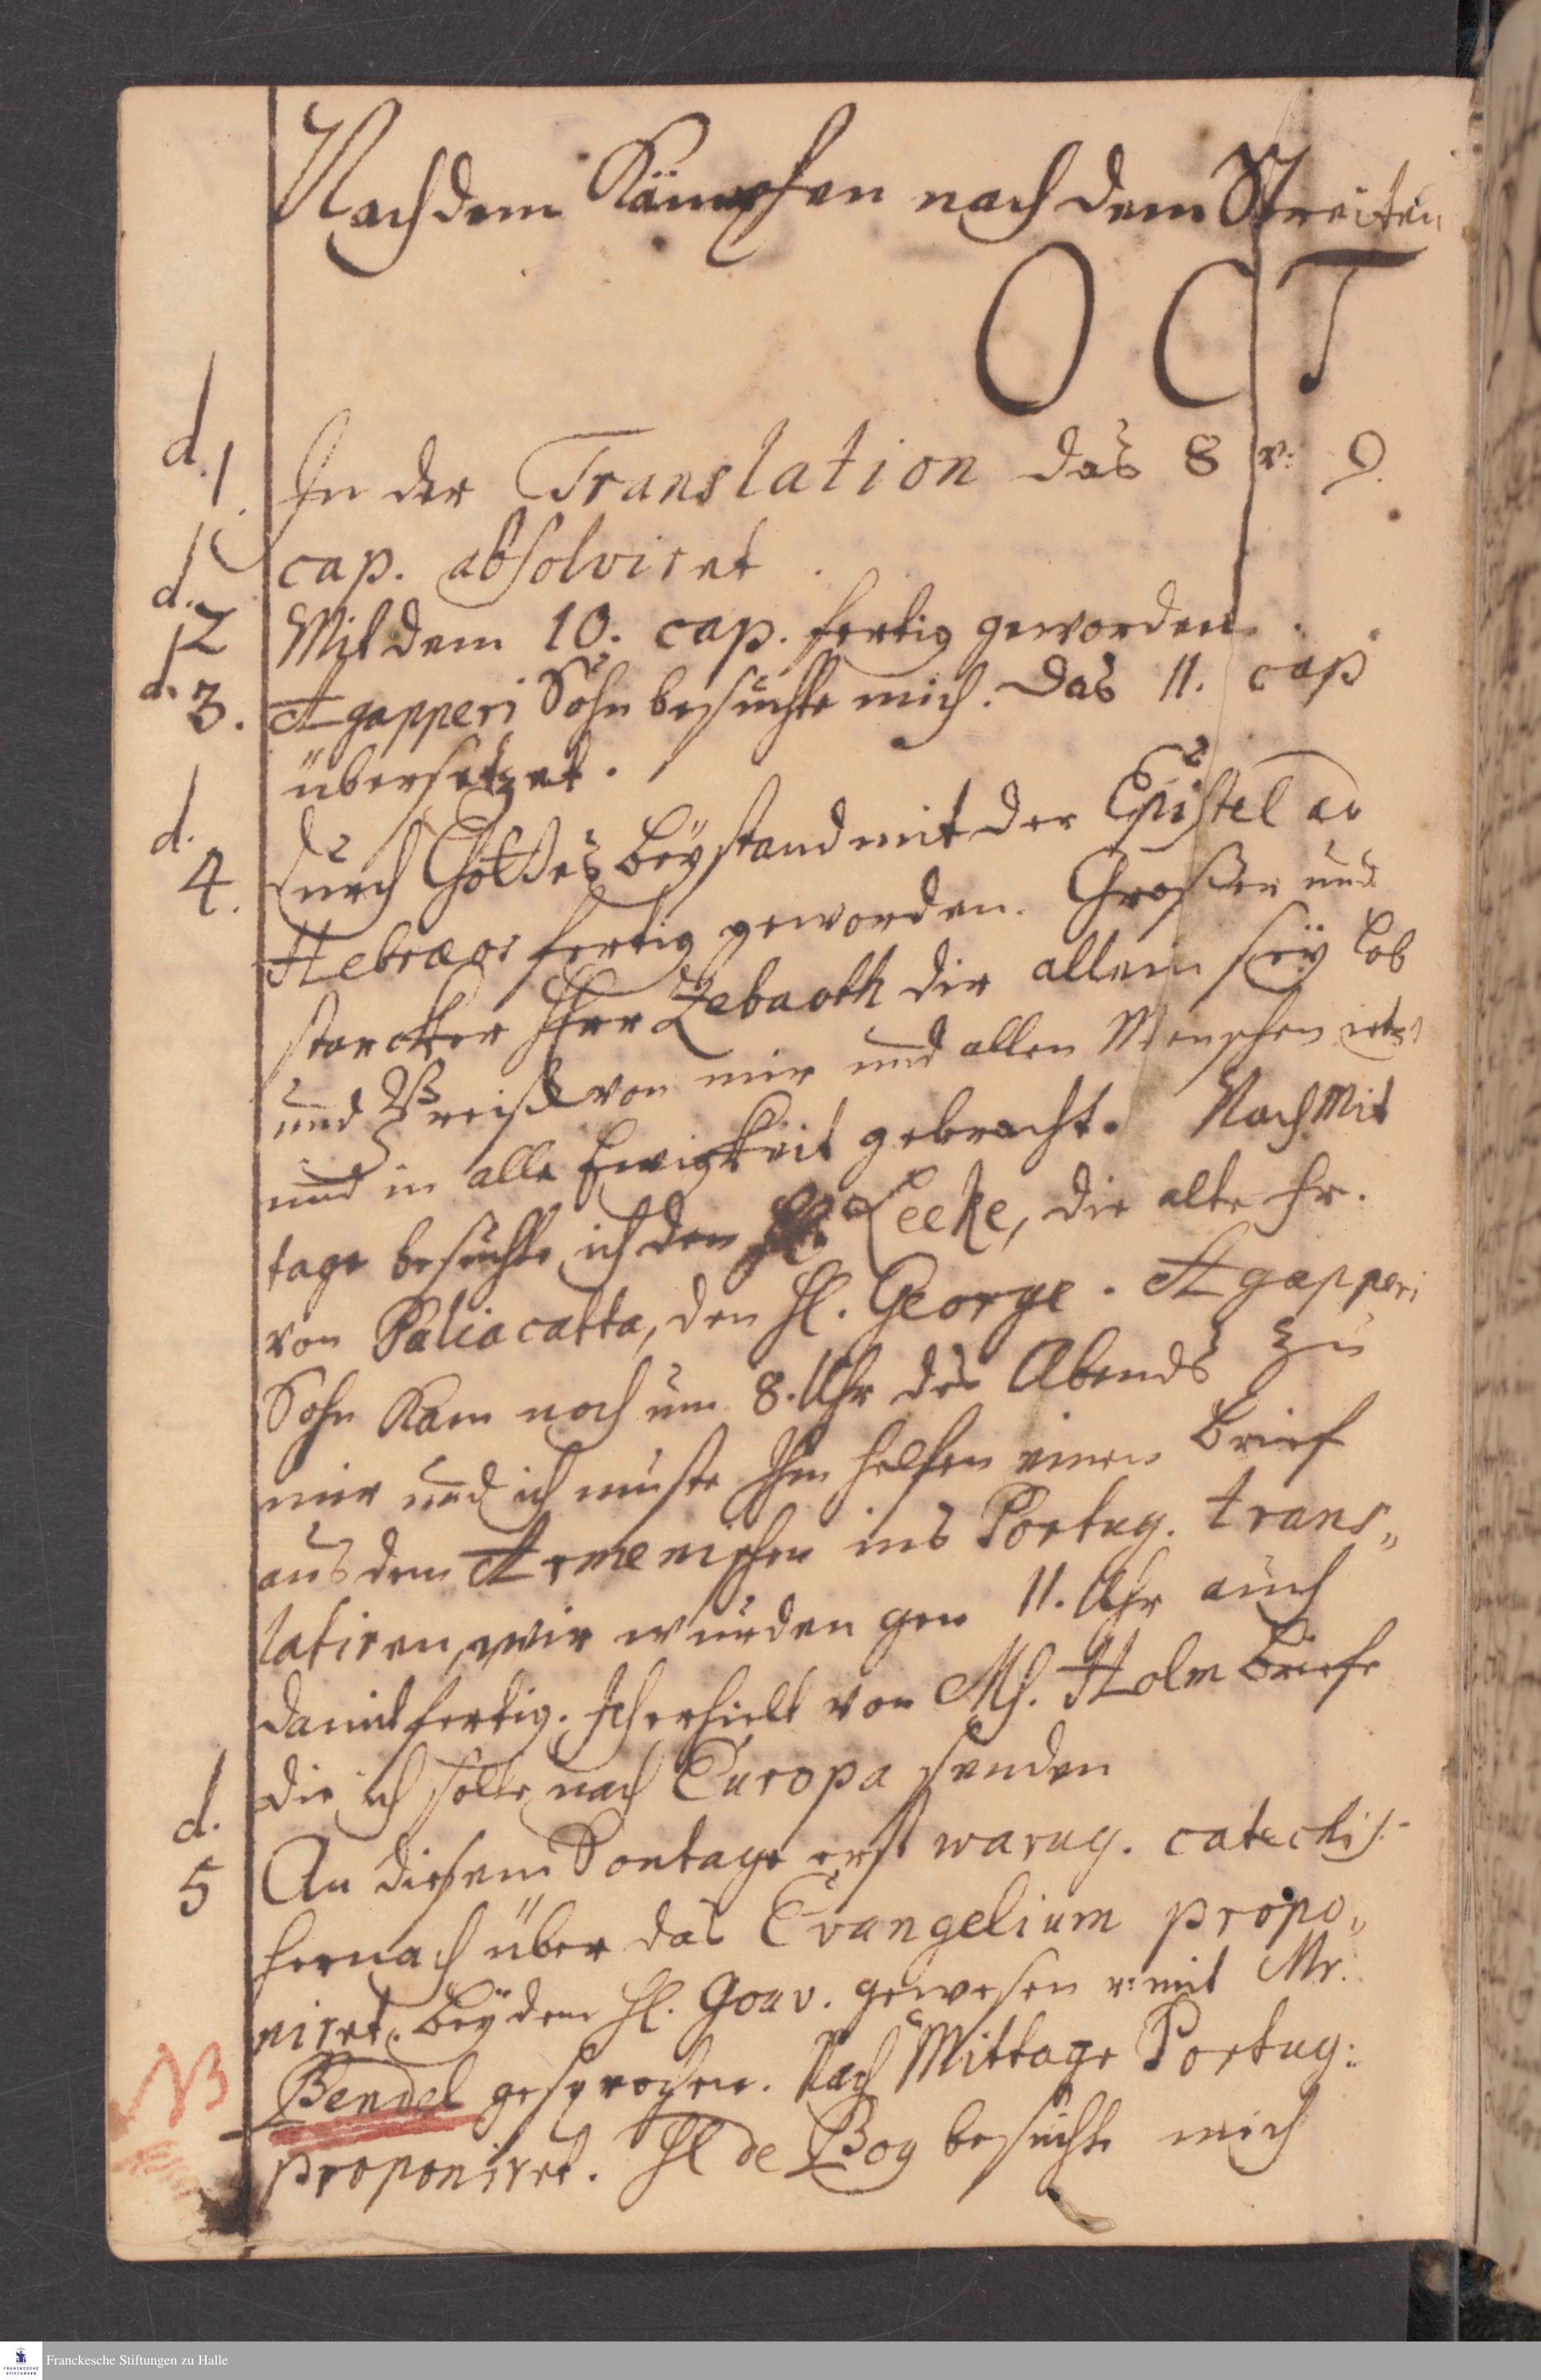 Nach dem Kämpfen nach dem Streiten
OCT
d. 1. In der Translation das 8 v: 9.
cap. absolviret.
d. 2 Mit dem 10. cap. fertig geworden.
d. 3. Agapperi Sohn besuchte mich. Das 11. cap
übersetzet.
d. 4. Durch Gottes Beystand mit der Epistel ad
Hebræos fertig geworden. Großer und
starcker Herr Zebaoth dir allein sey Lob
und Preiß von mir und allen Menschen
und in alle Ewigkeit gebracht. Nachmit
tage besuchte ich den Leeke, die alte Fr.
von Paliacatta, den H. George. Agapperi
Sohn kam noch um 8. Uhr des Abends zu
mir und ich muste Ihm helfen einen Brief
aus dem Armenischen ins Portug. trans„
latiren, wir wurden gen 11. Uhr auch
damit fertig. Ich erhielt von Mh. Holm Briefe
die ich solte nach Europa senden
d. 5 An diesem Sontage erst warug. catechis.
hernach über das Evangelium propo„
niret. Bey dem H. Gouv. gewesen v: mit Mr.
NB Bendel gesprochen. Nach Mittage Portug:
proponiret. H de Boy besuchte mich
Franckesche Stiftungen zu Halle